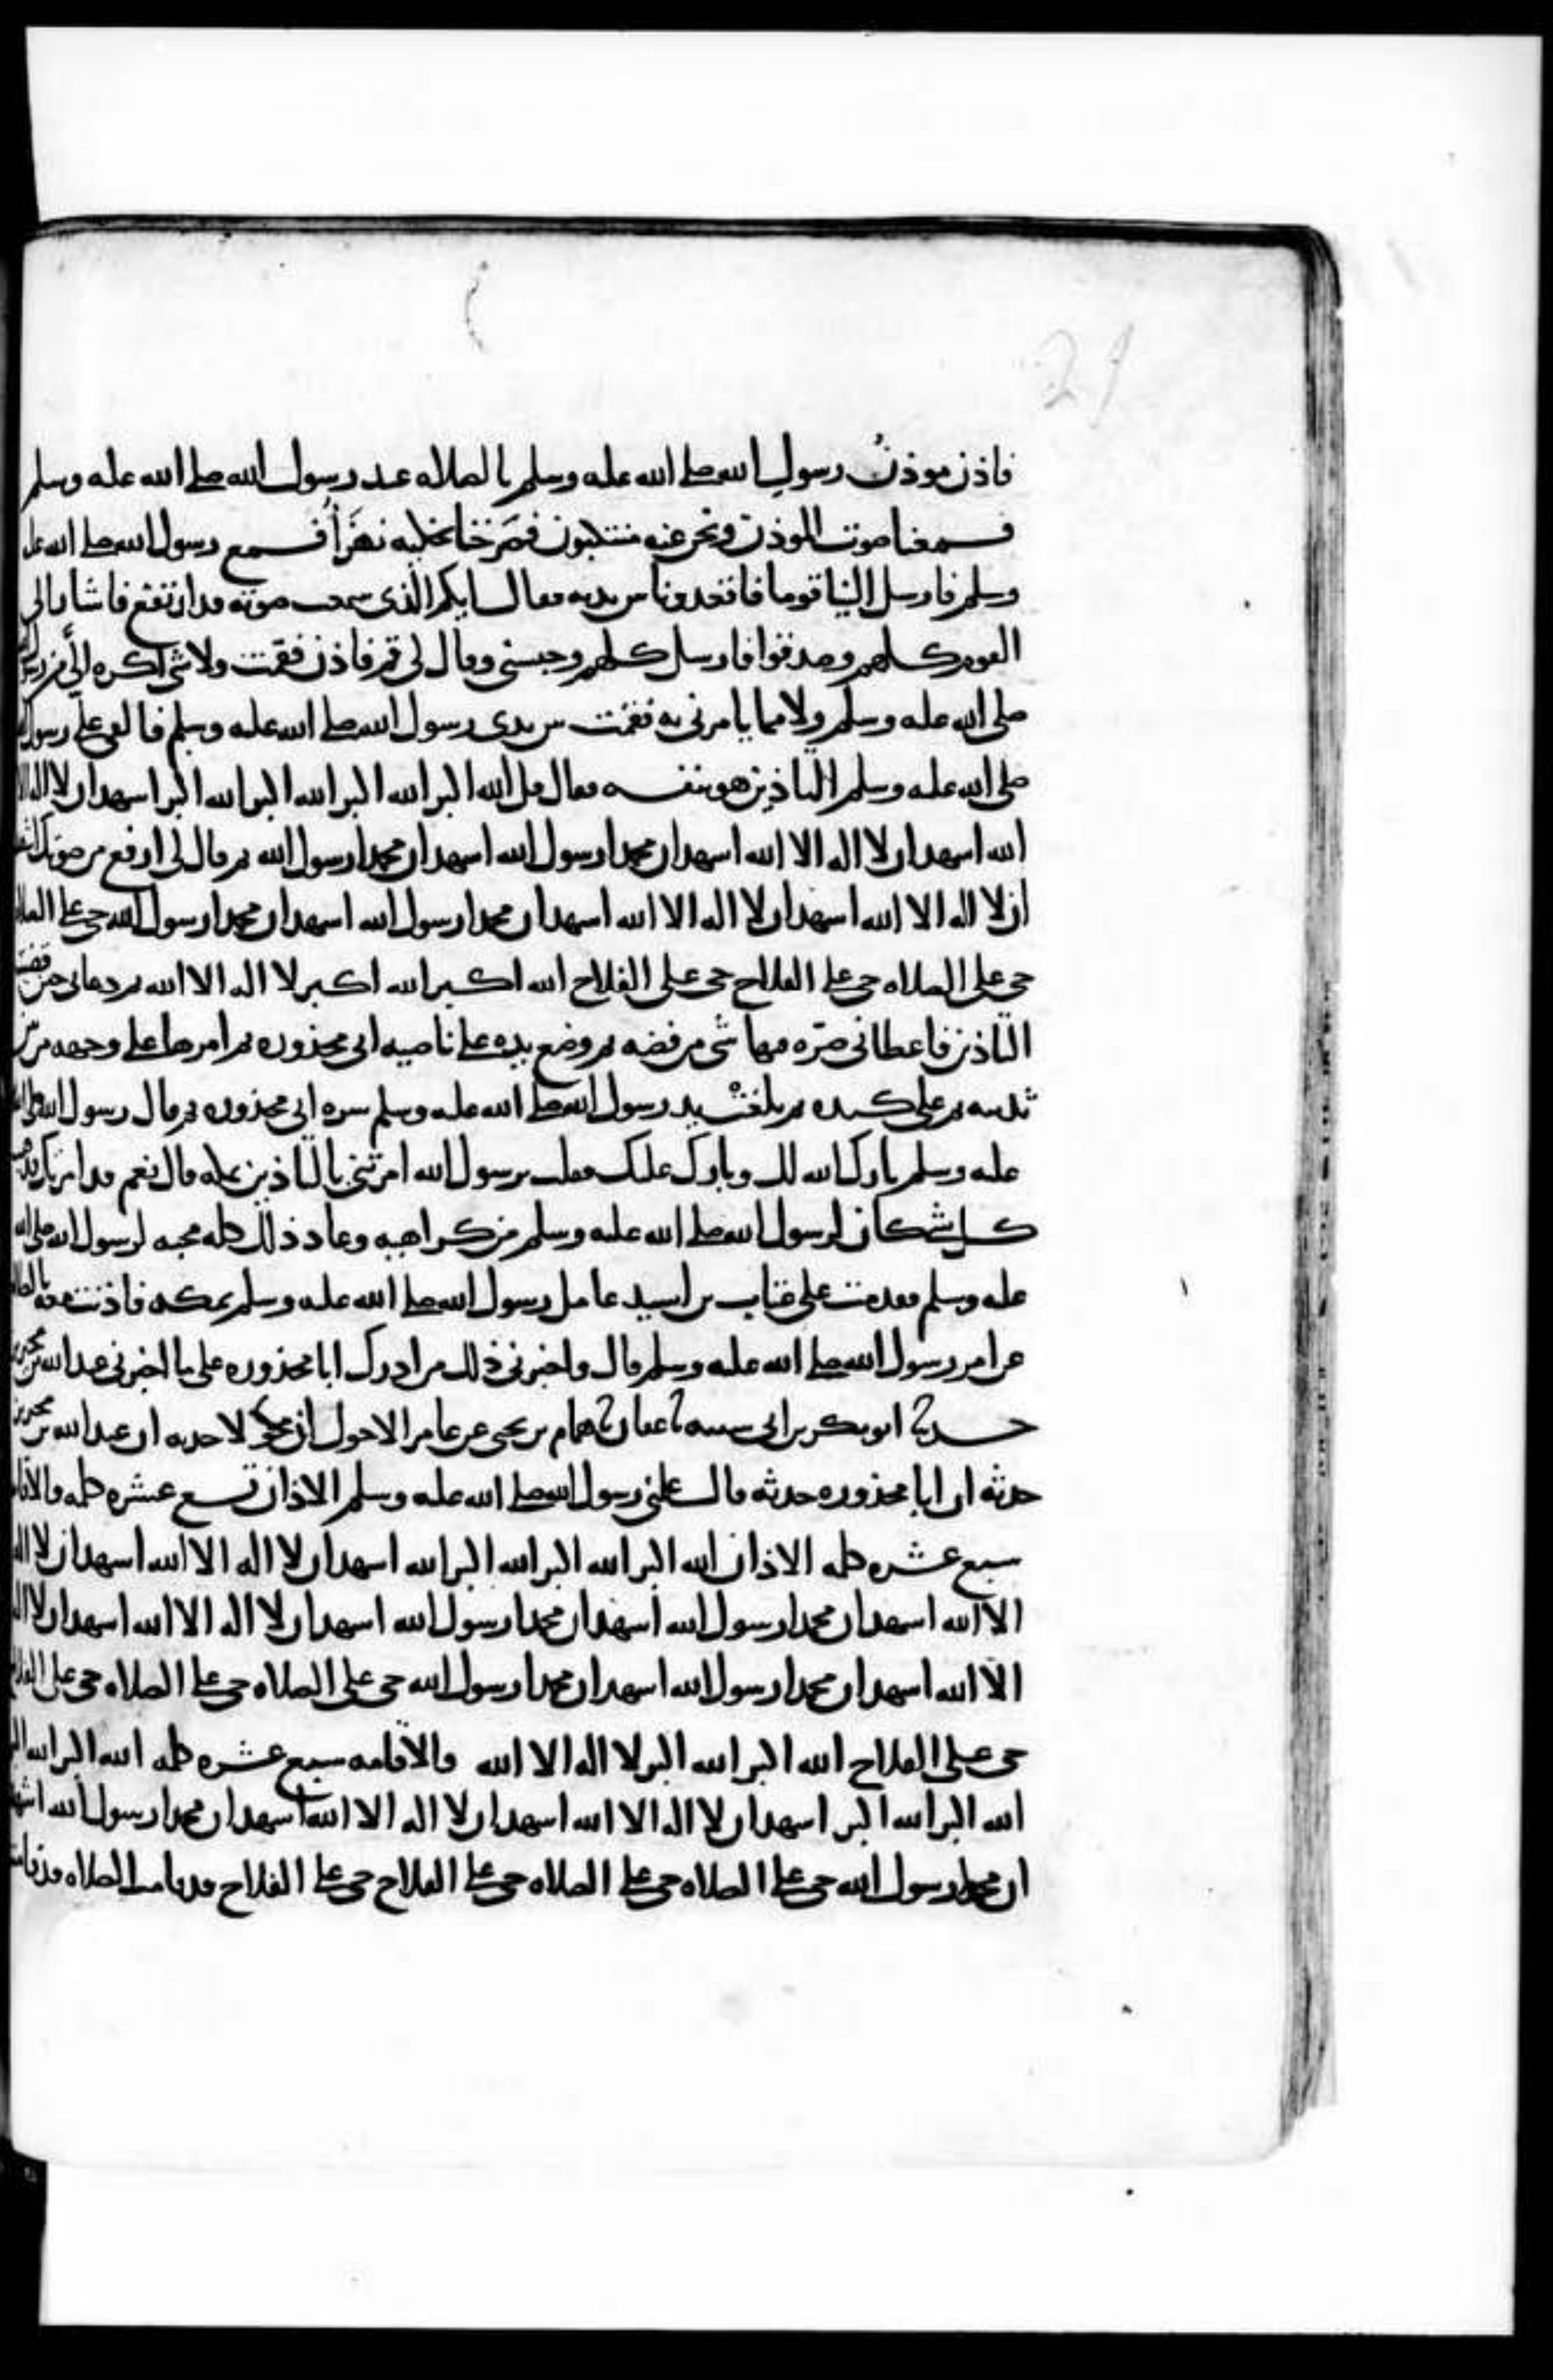 21
فاذن موذن رسول الله صلى الله عليه وسلم بالصلاه عند رسول الله صلى الله عليه وسلم
فسمعنا صوت الموذن ونحن عنه متنكبون فصرخنا نحكيه نهزأ فسمع رسول الله صلى الله عليه
وسلم فارسل الينا قوما فاقعدونا بين يديه فقال ايكم الذى سمعت صوته قد ارتفع فاشار الى
القوم كلهم وصدقوا فارسل كلهم وحبسنى وقال لى قم فاذن فقمت ولا شى اكره الىَّ من رسول الله
صلى الله عليه وسلم ولا مما يامرنى به فقمت بين يدى رسول الله صلى الله عليه وسلم فالقى على رسول الله
صلى الله عليه وسلم التاذين هو بنفسه فقال قل الله اكبر الله اكبر الله اكبر الله اكبر اشهد ان لا اله الا
الله اشهد ان لا اله الا الله اشهد ان محمدا رسول الله اشهد ان محمدا رسول الله ثم قال لى ارفع من صوتك اشهد
ان لا اله الا الله اشهد ان لا اله الا الله اشهد ان محمدا رسول الله اشهد ان محمدا رسول الله حى على الصلاه
حى على الصلاه حى على الفلاح حى على الفلاح الله اكبر الله اكبر لا اله الا الله ثم دعانى حين قضيت
التاذين فاعطانى صره فيها شى من فضه ثم وضع يده على ناصيه ابى محذوره ثم امرها على وجهه من بين
ثدييه ثم على كبده ثم بلغت يد رسول الله صلى الله عليه وسلم سره ابى محذوره ثم قال رسول الله صلى الله
عليه وسلم بارك الله لك وبارك عليك فقلت يرسول الله امرتنى بالتاذين بمكه قال نعم قد امرتك فذهب
كل شى كان لرسول الله صلى الله عليه وسلم من كراهيه وعاد ذلك كله محبه لرسول الله صلى الله
عليه وسلم فقدمت على عتاب بن اسيد عامل رسول الله صلى الله عليه وسلم بمكه فاذنت معه بالصلاه
عن امر رسول الله صلى الله عليه وسلم قال واخبرنى ذلك من ادرك ابا محذوره على ما اخبرنى عبد الله بن محيريز
حدثنا ابو بكر بن ابى شيبه ثنا عفان ثنا همام بن يحيى عن عامر الاحول ان مكحولا حدثه ان عبد الله بن محيريز
حدثه ان ابا محذوره حدثه قال علمنى رسول الله صلى الله عليه وسلم الاذان تسع عشره كلمه والاقامه
سبع عشره كلمه الاذان الله اكبر الله اكبر الله اكبر الله اكبر الله اشهد ان لا اله الا الله اشهد ان لا اله
الا الله اشهد ان محمدا رسول الله اشهد ان محمدا رسول الله اشهد ان لا اله الا الله اشهد ان لا اله
الا الله اشهد ان محمدا رسول الله اشهد ان محمدا رسول الله حى على الصلاه حى على الصلاه حى على الفلاح
حى على الفلاح الله اكبر الله اكبر لا اله الا الله والاقامه سبع عشره كلمه الله اكبر الله اكبر
الله اكبر الله اكبر اشهد ان لا اله الا الله اشهد ان لا اله الا الله اشهد ان محمدا رسول الله اشهد
ان محمدا رسول الله حى على الصلاه حى على الصلاه حى على الفلاح حى على الفلاح قد قامت الصلاه قد قامت